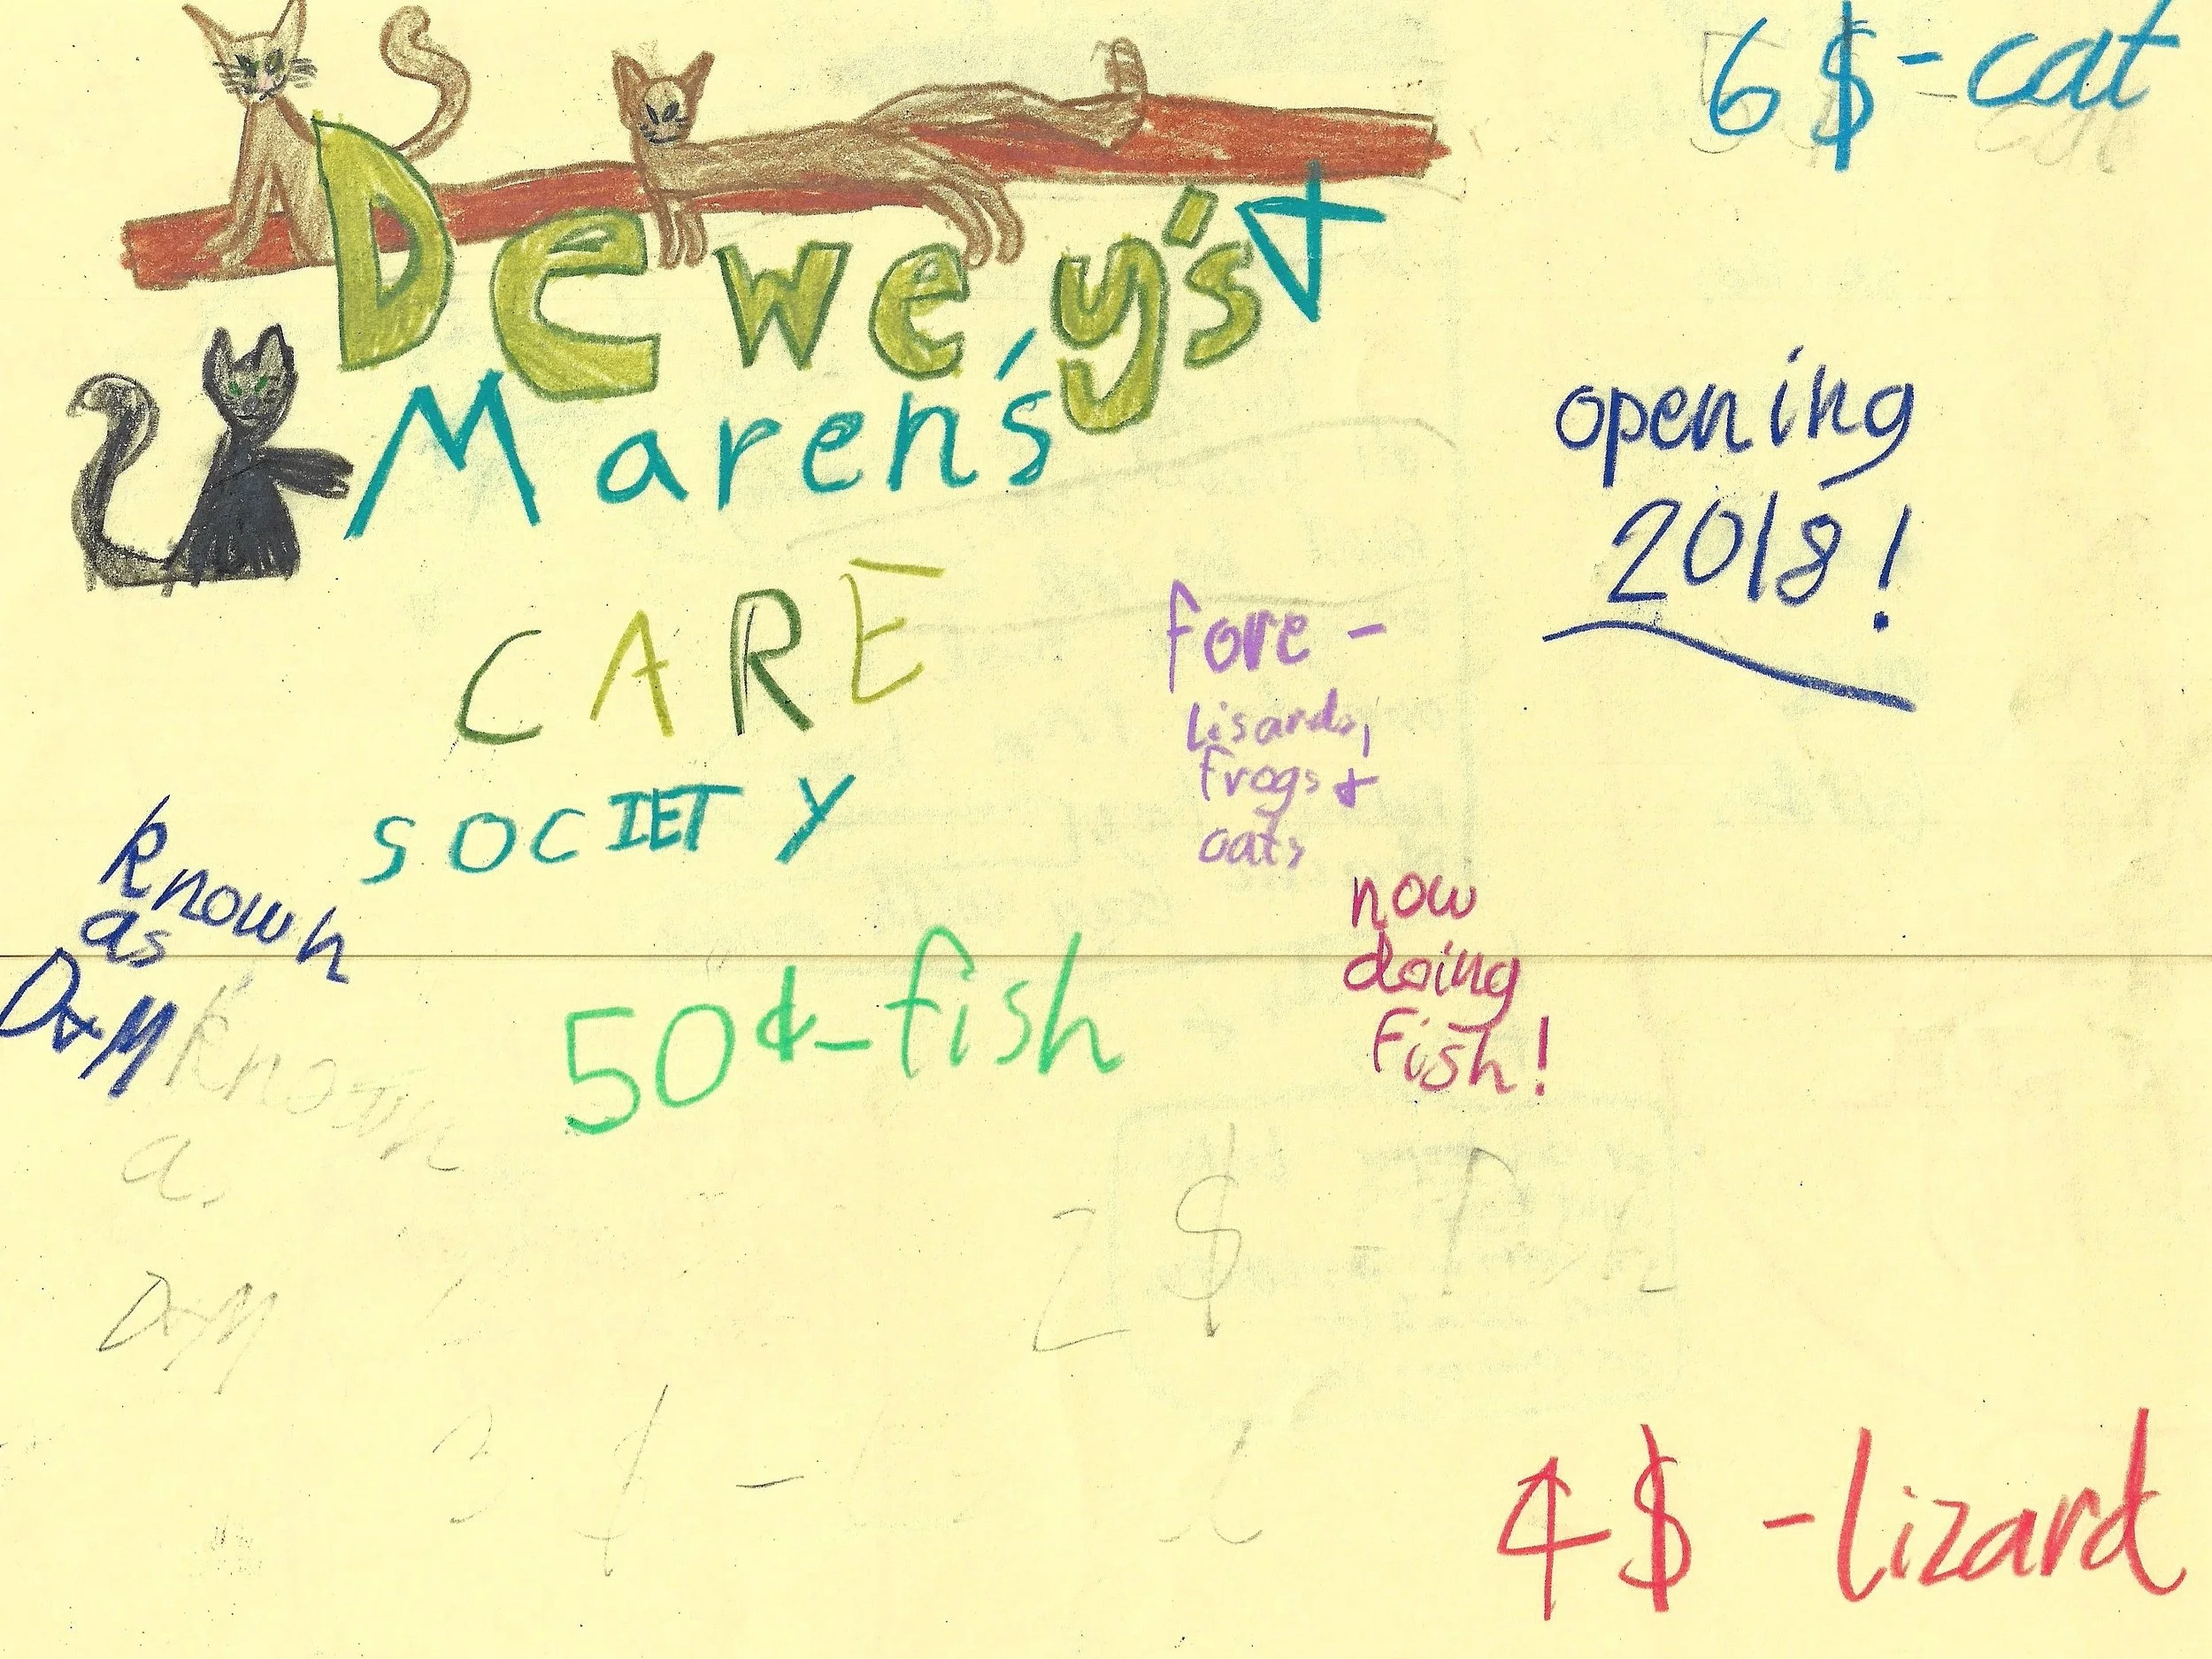 6$-cat
Dewey's +
Maren's
opening
2018!
CARE
SOCIETY
fore -
Lisards,
frogs +
cats
known
as
D+M
now
doing
Fish!
50¢-fish
known
as
D+M
2$ - fish
3 $ -
4$ -lizard